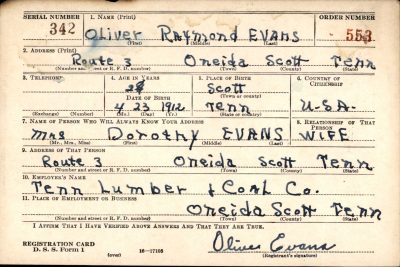 SERIAL NUMBER 1. NAME (Print) ORDER NUMBER
342 Oliver Raymond EVANS 553
(First) (Middle) (Last)
2. ADDRESS (Print)
Route 3 Oneida Scott Tenn
(Number and street or R. F. D. number) (Town) (County) (State)
3. TELEPHONE 4. AGE IN YEARS 5. PLACE OF BIRTH 6. COUNTRY OF CITIZENSHIP
28 Scott
DATE OF BIRTH (Town or county)
4 23 1912 Tenn U.S.A.
(Exchange) (Number) (Mo.) (Day) (Yr.) (State or country)
7. NAME OF PERSON WHO WILL ALWAYS KNOW YOUR ADDRESS 8. RELATIONSHIP OF THAT PERSON
Mrs Dorothy EVANS WIFE
(Mr., Mrs., Miss) (First) (Middle) (Last)
9. ADDRESS OF THAT PERSON
Route 3 Oneida Scott Tenn
(Number and street or R. F. D. number) (Town) (County) (State)
10. EMPLOYER'S NAME
Tenn Lumber & Coal Co.
11. PLACE OF EMPLOYMENT OR BUSINESS
Oneida Scott Tenn
(Number and street or R. F. D. number) (Town) (County) (State)
I AFFIRM THAT I HAVE VERIFIED ABOVE ANSWERS AND THAT THEY ARE TRUE.
REGISTRATION CARD Oliver Evans
D. S. S. Form 1 (over) 16—17105 (Registrant's signature)